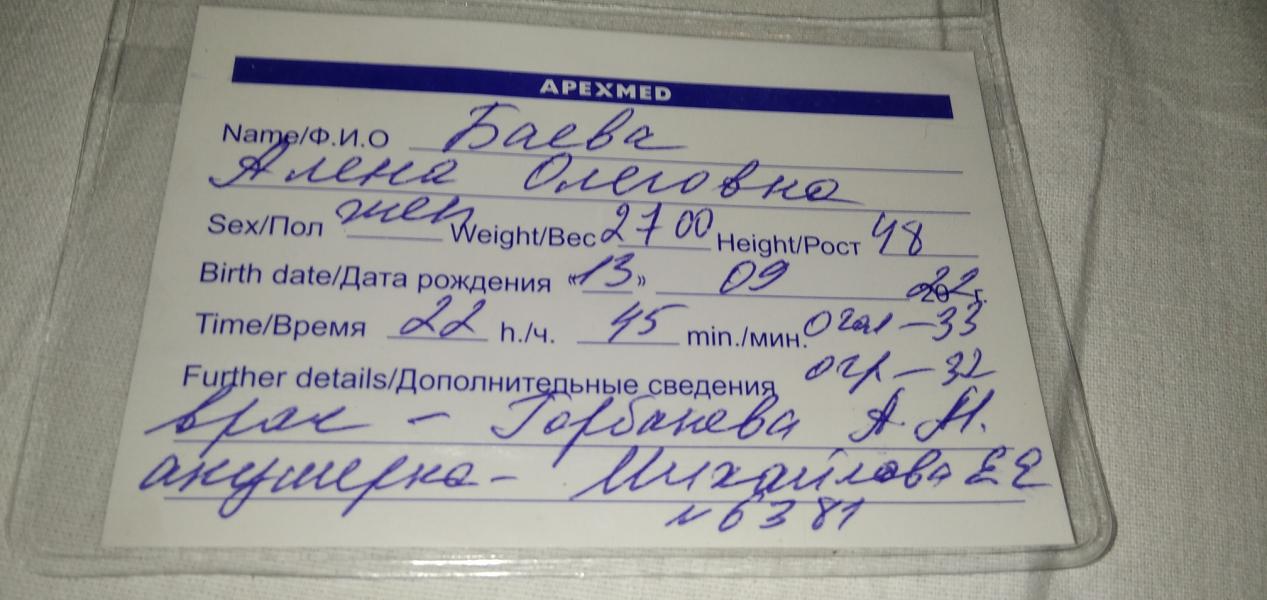 APEXMED
Name/Ф.И.О Баева
Алена Олеговна
Sex/Пол жен Weight/Вес 2700 Height/Рост 48
Birth date/Дата рождения «13» 09 2022 г.
Time/Время 22 h./ч. 45 min./мин. Огол – 33
Further details/Дополнительные сведения огр – 32
врач – Горбанева А.Н.
акушерка – Михайлова Е Е
№ 6381